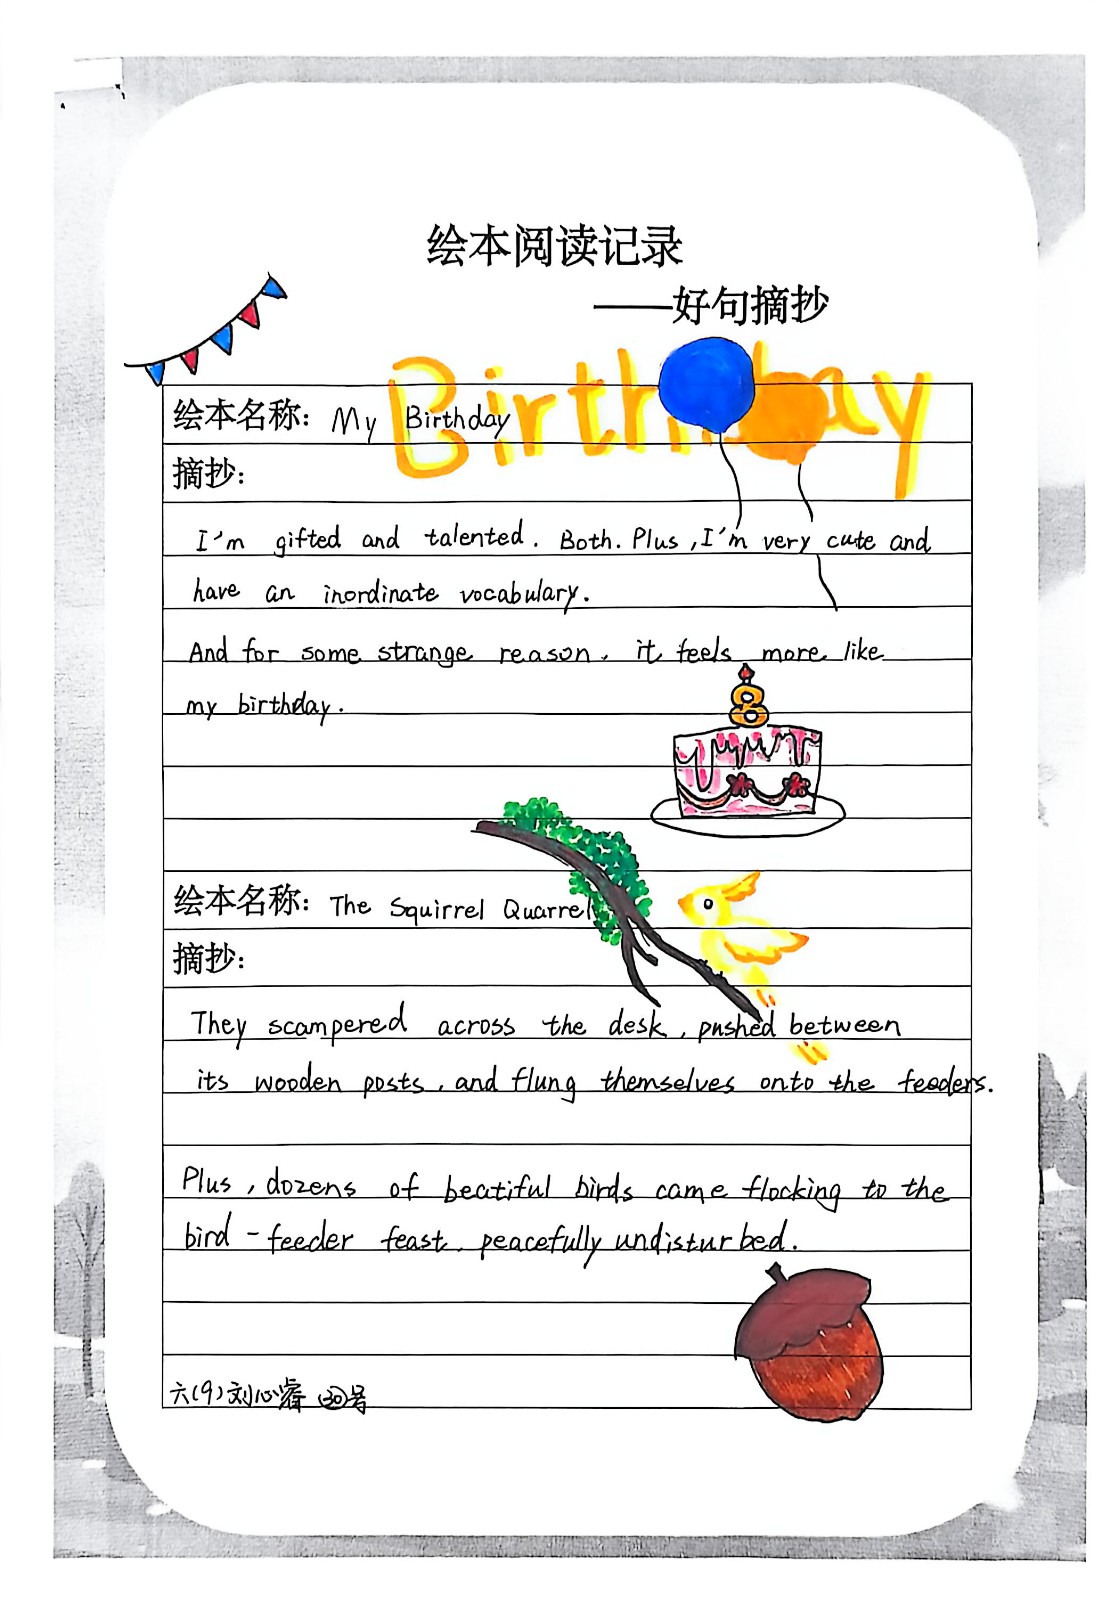 绘本阅读记录
——好句摘抄
Birthday
绘本名称：My Birthday
摘抄：
I'm gifted and talented. Both. Plus, I'm very cute and
have an inordinate vocabulary.
And for some strange reason, it feels more like
my birthday.
8
绘本名称：The Squirrel Quarrel
摘抄：
They scampered across the desk, pushed between
its wooden posts, and flung themselves onto the feeders.
Plus, dozens of beatiful birds came flocking to the
bird-feeder feast, peacefully undisturbed.
六(9)刘心睿 30号